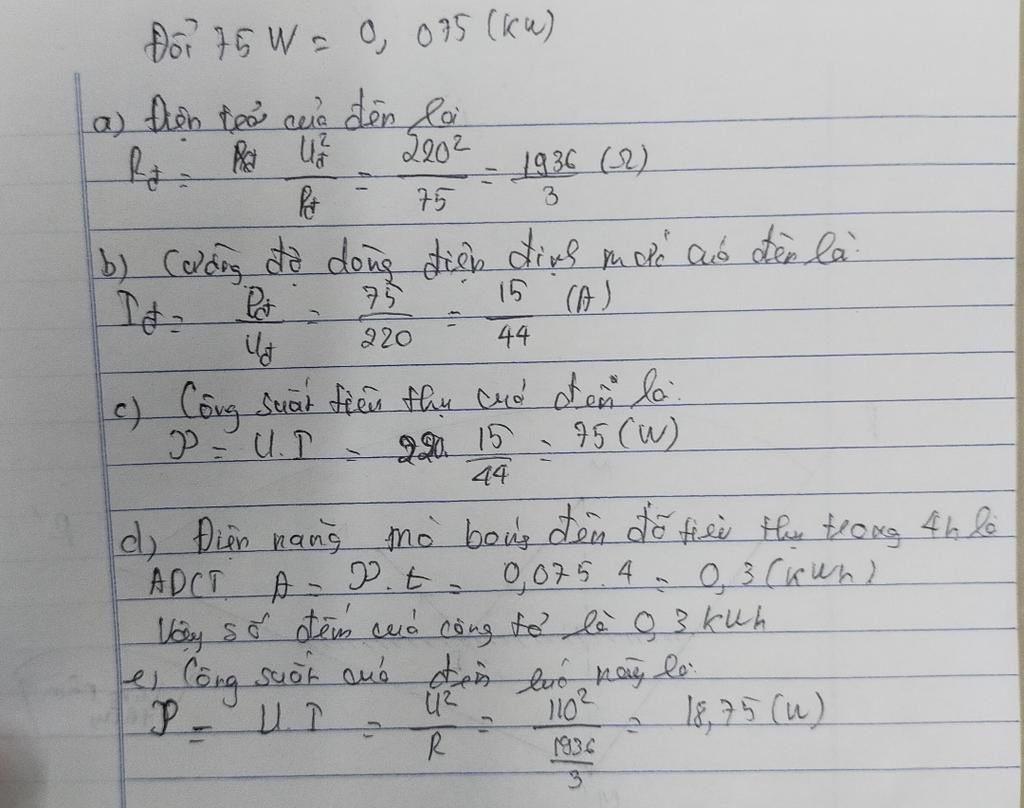 Đổi 75 W = 0, 075 (KW)
a) Điện trở của đèn là
Rđ = Uđ² / Pđ = 220² / 75 = 1936 / 3 (Ω)
b) Cường độ dòng điện định mức của đèn là:
Iđ = Pđ / Uđ = 75 / 220 = 15 / 44 (A)
c) Công suất tiêu thụ của đèn là:
P = U.I = 220. 15 / 44 = 75 (W)
d) Điện năng mà bóng đèn đã tiêu thụ trong 4h là
ADCT. A = P.t = 0,075.4 = 0,3 (KWh)
Vậy số đếm của công tơ là 0,3 KWh
e) Công suất của đèn lúc này là:
P = U.I = U² / R = 110² / 1936 / 3 = 18,75 (W)